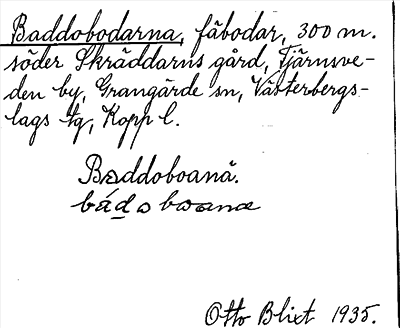 Baddobodarna, fäbodar, 300 m.
söder Skräddarns gård, Tjärnsve-
den by, Grangärde sn, Västerbergs-
lags tg, Kopp l.
Baddoboanä.
bádoboanæ
Otto Blixt 1935.